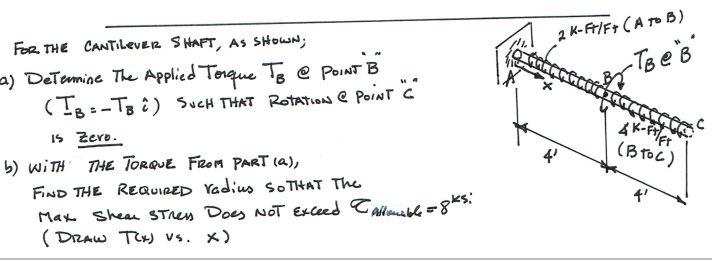 FOR THE CANTILEVER SHAFT, AS SHOWN;
a) Determine The Applied Torque T_B @ POINT "B"
(T_B = -T_B î) SUCH THAT ROTATION @ POINT "C"
IS Zero.
b) WITH THE TORQUE FROM PART (a),
FIND THE REQUIRED radius SO THAT The
Max Shear STRESS DOES NOT Exceed τ allowable = 8 ksi
(DRAW T(x) vs. x)
2 K-FT/FT (A TO B)
T_B @ "B"
A
x
B
C
4 K-FT/FT
(B TO C)
4'
4'